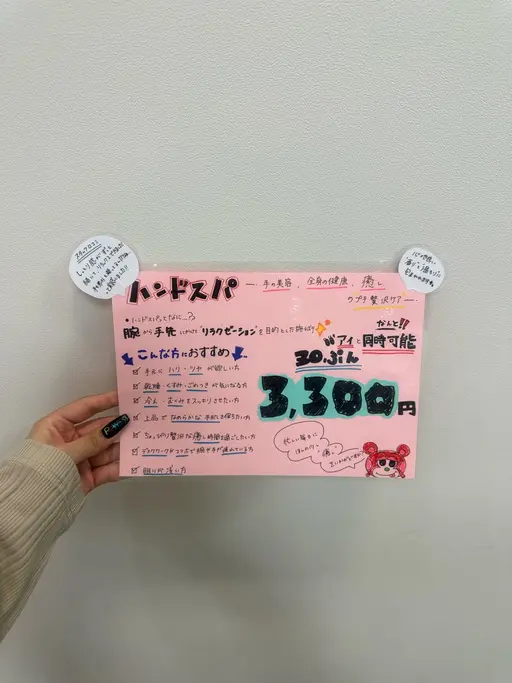 スタッフ口コミ
ハンドスパ
― 手の美容、全身の健康、癒し
のプチ贅沢ケア ―
●ハンドスパってなに…?
腕から手先にかけて"リラクゼーション"を目的とした
なんと!!
アイと同時可能
こんな方におすすめ
30ぷん
3,300円
☑ 手元にハリ・ツヤが欲しい方
☑ 乾燥・くすみ・ごわつきが気になる方
☑ 冷え・むくみをスッキリさせたい方
☑ 上品でなめらかな手肌を保ちたい方
☑ ちょっぴり贅沢な癒し時間を過ごしたい方
☑ デスクワークやスマホで腕や手が疲れている方
☑ 眠りが浅い方
忙しい毎日に